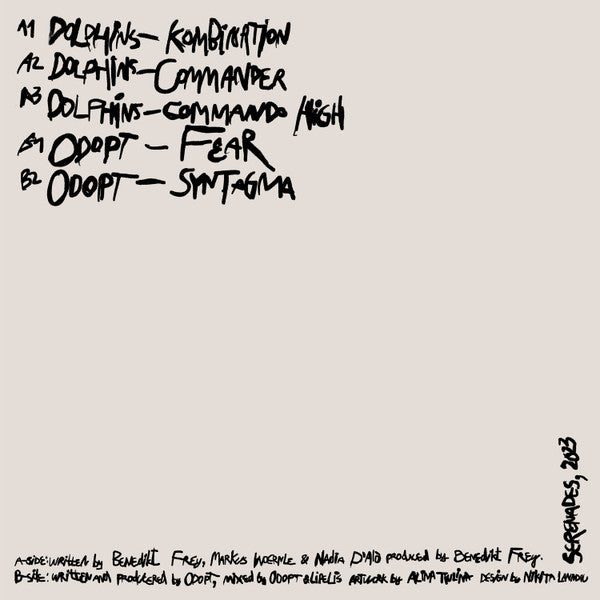 A1 DOLPHINS — KOMBINATION
A2 DOLPHINS — COMMANDER
A3 DOLPHINS — COMMANDO HIGH
B1 ODOPT — FEAR
B2 ODOPT — SYNTAGMA
SERENADES, 2023
A-SIDE: WRITTEN by BENEDIKT FREY, MARKUS WOERNLE & NADIA D'ALÒ PRODUCED by BENEDIKT FREY.
B-SIDE: WRITTEN AND PRODUCERED by ODOPT, MIXED by ODOPT & LIPELIS ARTWORK by ALINA DESIGN by NIKITA